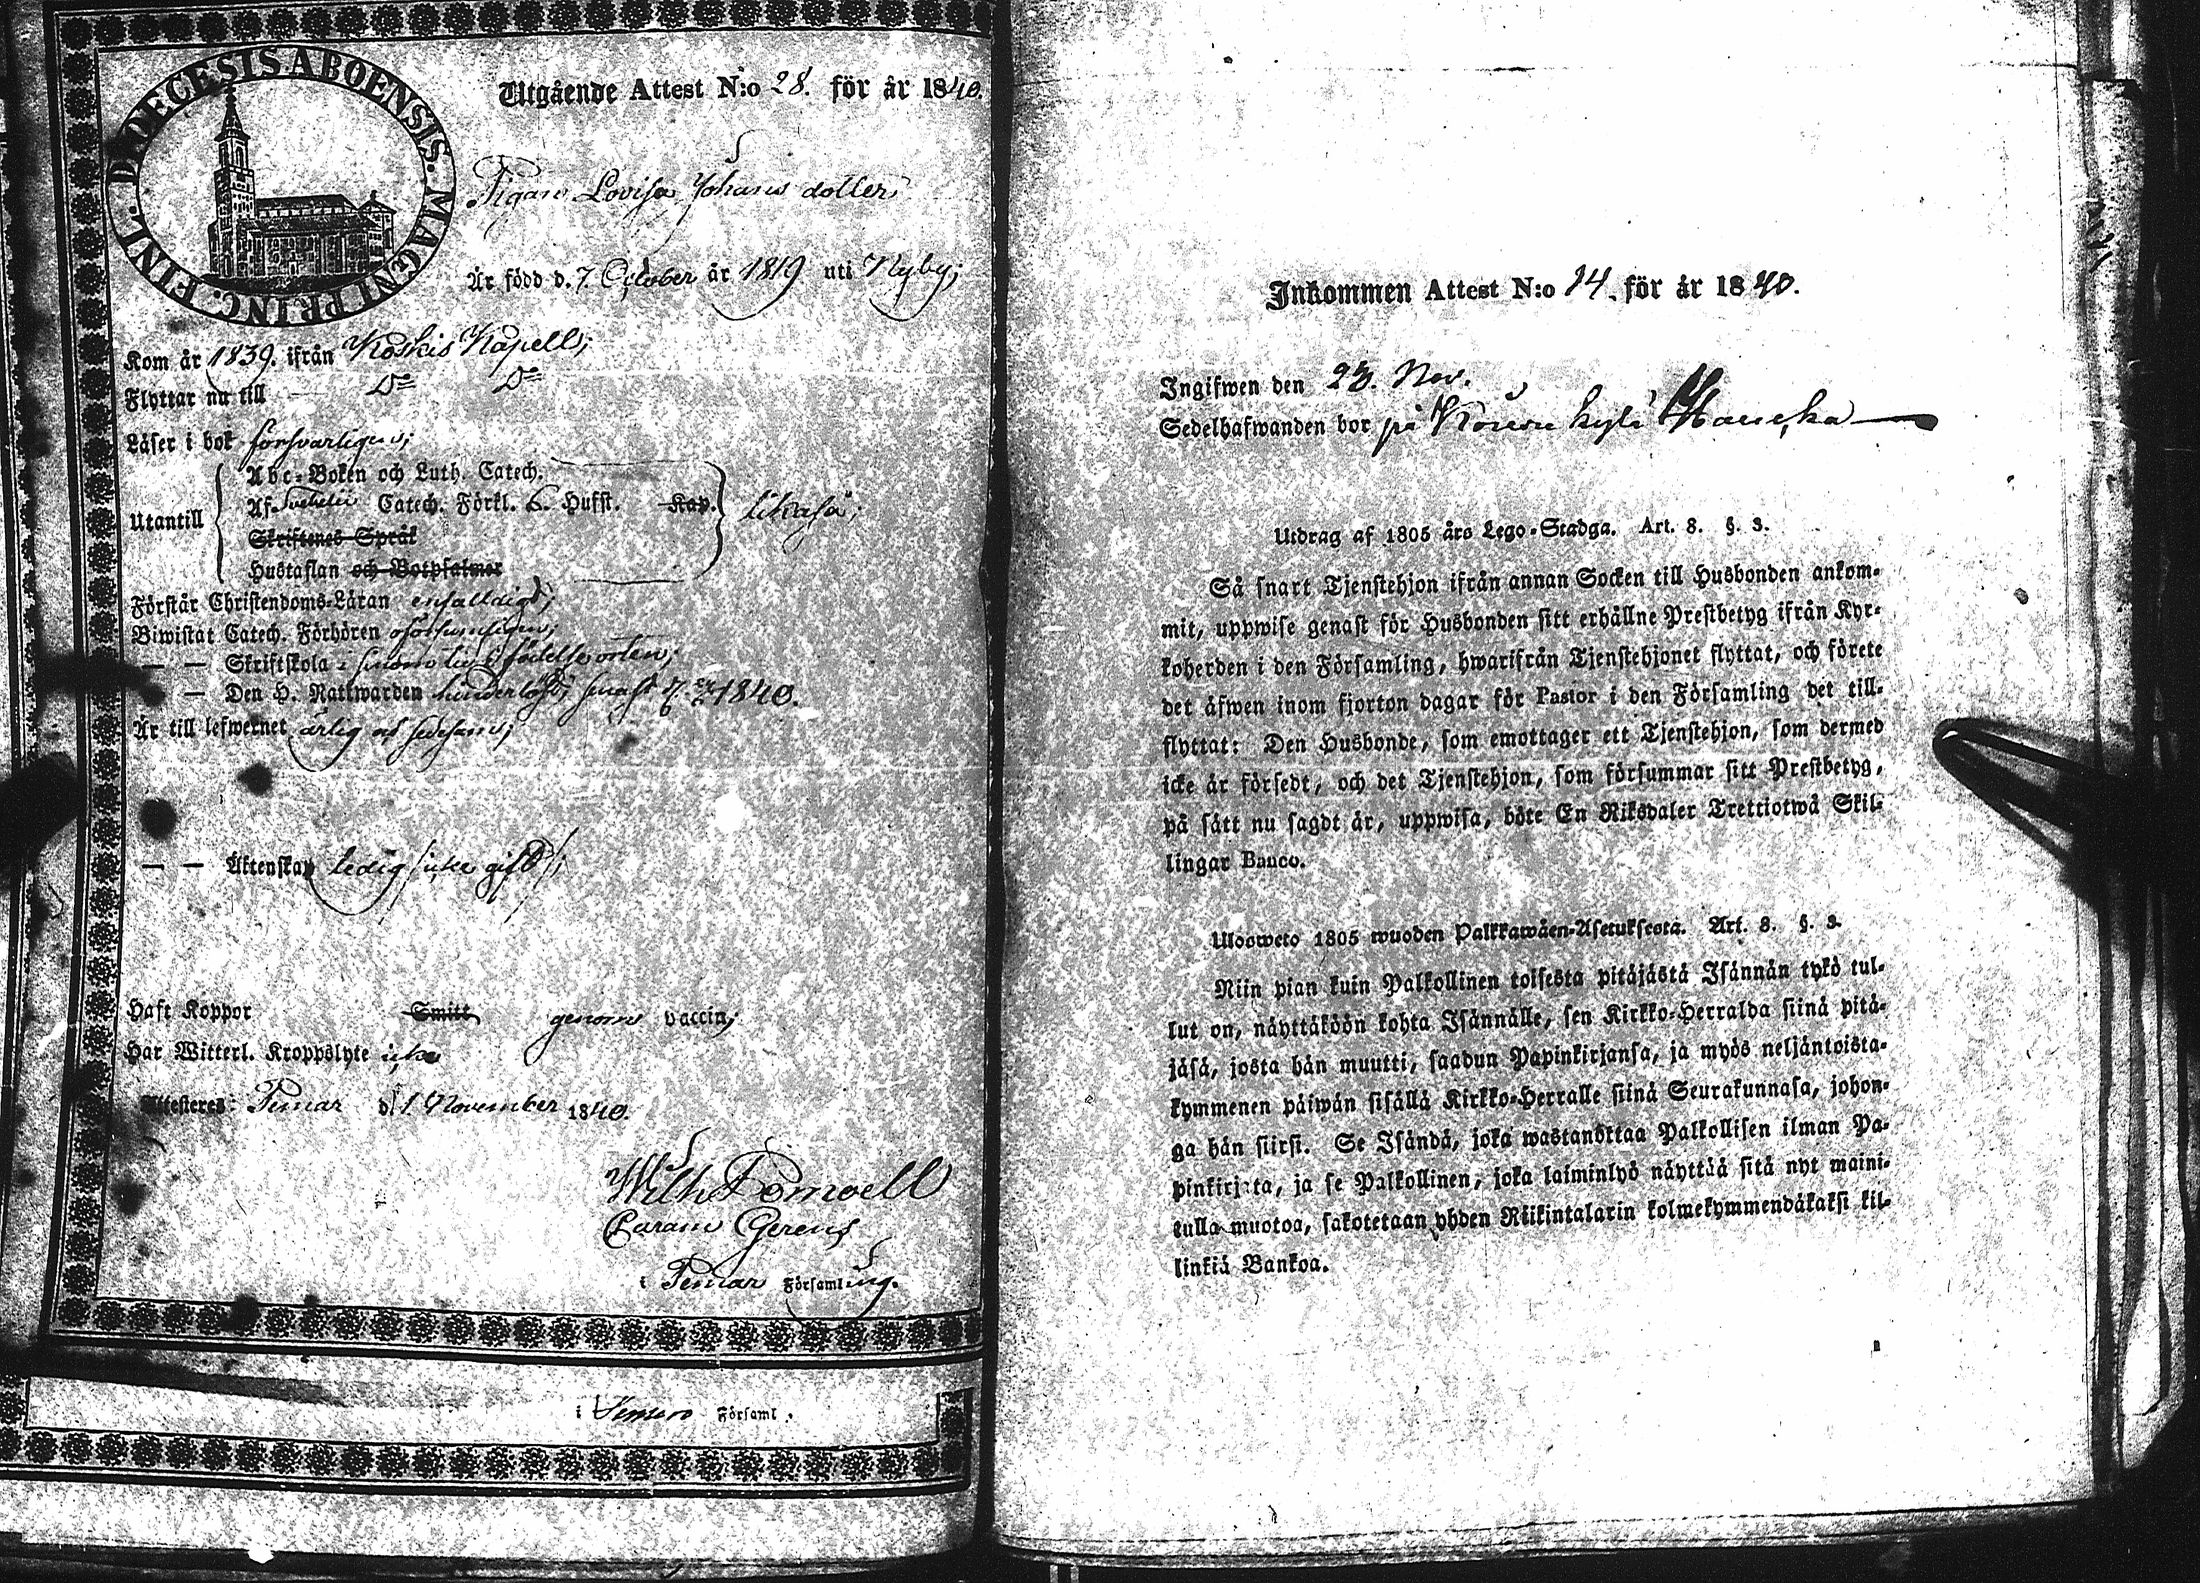 DIOECESIS ABOENSIS. MAGNI PRINC. FINL.
Utgående Attest N:o 28. för år 1840.
Pigan Lovisa Johans dotter
Är född d. 7 October år 1819 uti Nyby;
Kom år 1839. ifrån Koskis Kapell;
Flyttar nu till D:o D:o
Läser i bok försvarligen;
Utantill
Abc-Boken och Luth. Catech.
Af Svebelii Catech. Förkl. 6. Hufst. Kap.
likaså;
Skriftenes Språk
Hustaflan och Botpsalmer
Förstår Christendoms-Läran enfalldigt;
Biwistat Catech. Förhören oförsummligen;
— — Skriftskola i födelseorten;
— Den H. Nattwarden hinderlöst; senast 1840.
Är till lefwernet ärlig och sedesam;
— — Äktenskap ledig /icke gift/;
Haft Koppor Smitt genom vaccin;
Har Witterl. Kroppslyte icke
Attesteres: Pemar d. 1 November 1840.
Wilh.
i Pemar Församling.
i Församl.
Inkommen Attest N:o 14. för år 1840.
Ingifwen den 23. Nov.
Sedelhafwanden bor på
Utdrag af 1805 års Lego-Stadga. Art. 8. §. 3.
Så snart Tjenstehjon ifrån annan Socken till Husbonden ankom-
mit, uppwise genast för Husbonden sitt erhållne Prestbetyg ifrån Kyr-
koherden i den Församling, hwarifrån Tjenstehjonet flyttat, och förete
det äfwen inom fjorton dagar för Pastor i den Församling det till-
flyttat: Den Husbonde, som emottager ett Tjenstehjon, som dermed
icke är försedt, och det Tjenstehjon, som försummar sitt Prestbetyg,
på sätt nu sagdt är, uppwisa, böte En Riksdaler Trettiotwå Skil-
lingar Banco.
Ulosweto 1805 wuoden Palkkawäen-Asetuksesta. Art. 8. §. 3.
Niin pian kuin Palkollinen toisesta pitäjästä Isännän tykö tul-
lut on, näyttäköön kohta Isännälle, sen Kirkko-Herralda siinä pitä-
jäsä, josta hän muutti, saadun Papinkirjansa, ja myös neljäntoista-
kymmenen päiwän sisällä Kirkko-Herralle siinä Seurakunnasa, johon-
ga hän siirsi. Se Isändä, joka wastanottaa Palkollisen ilman Pa-
pinkirjata, ja se Palkollinen, joka laiminlyö näyttää sitä nyt maini-
tulla muotoa, sakotetaan yhden Riikintalarin kolmekymmendäkaksi kil-
linkiä Bankoa.